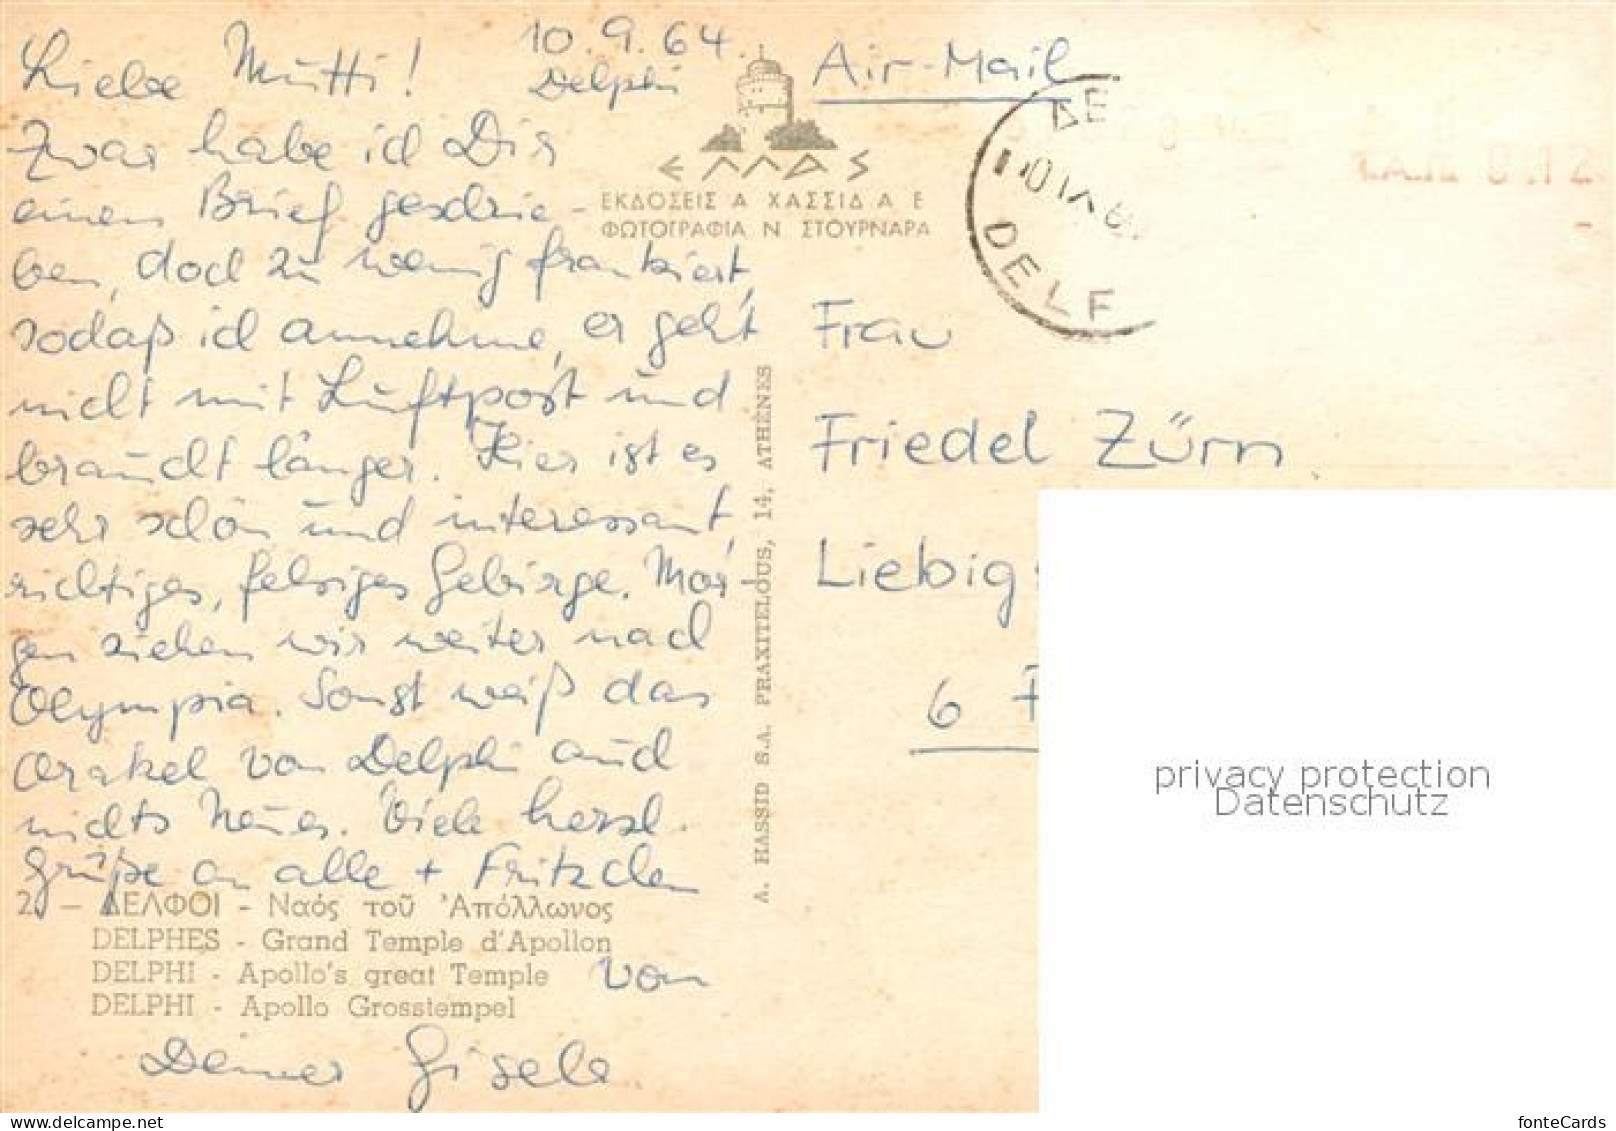 10.9.64.
Delphi
Liebe Mutti!
Zwar habe ich Dir
einen Brief geschrie-
ben, doch zu wenig frankiert,
sodaß ich annehme, er geht
nicht mit Luftpost und
braucht länger. Hier ist es
sehr schön und interessant,
richtiges, felsiges Gebirge. Mor-
gen ziehen wir weiter nach
Olympia. Sonst weiß das
Orakel von Delphi auch
nichts Neues. Viele herzl.
Grüße an alle + Fritzchen
von
Deiner Gisele
2. - ΔΕΛΦΟΙ - Ναός τοῦ Ἀπόλλωνος
DELPHES - Grand Temple d'Apollon
DELPHI - Apollo's great Temple
DELPHI - Apollo Grosstempel
ΕΛΛΑΣ
ΕΚΔΟΣΕΙΣ Α ΧΑΣΣΙΔ Α Ε
ΦΩΤΟΓΡΑΦΙΑ Ν. ΣΤΟΥΡΝΑΡΑ
A. HASSID S.A. PRAXITELOUS, 14, ATHÈNES
Air-Mail
ΔΕ
DELF
Frau
Friedel Zürn
Liebig
6 F
privacy protection
Datenschutz
www.delcampe.net
fonteCards